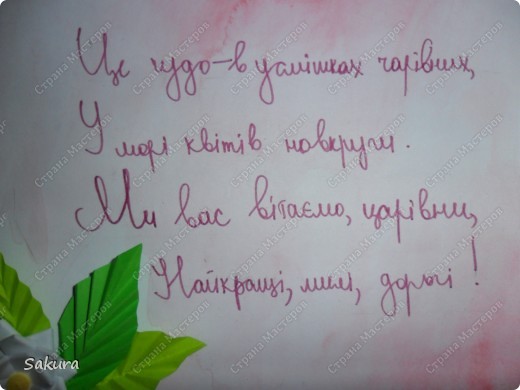 Це чудо-в усмішках чарівних,
У морі квітів навкруги.
Ми вас вітаємо, царівни,
Найкращі, милі, дорогі!
Sakura
Страна Мастеров